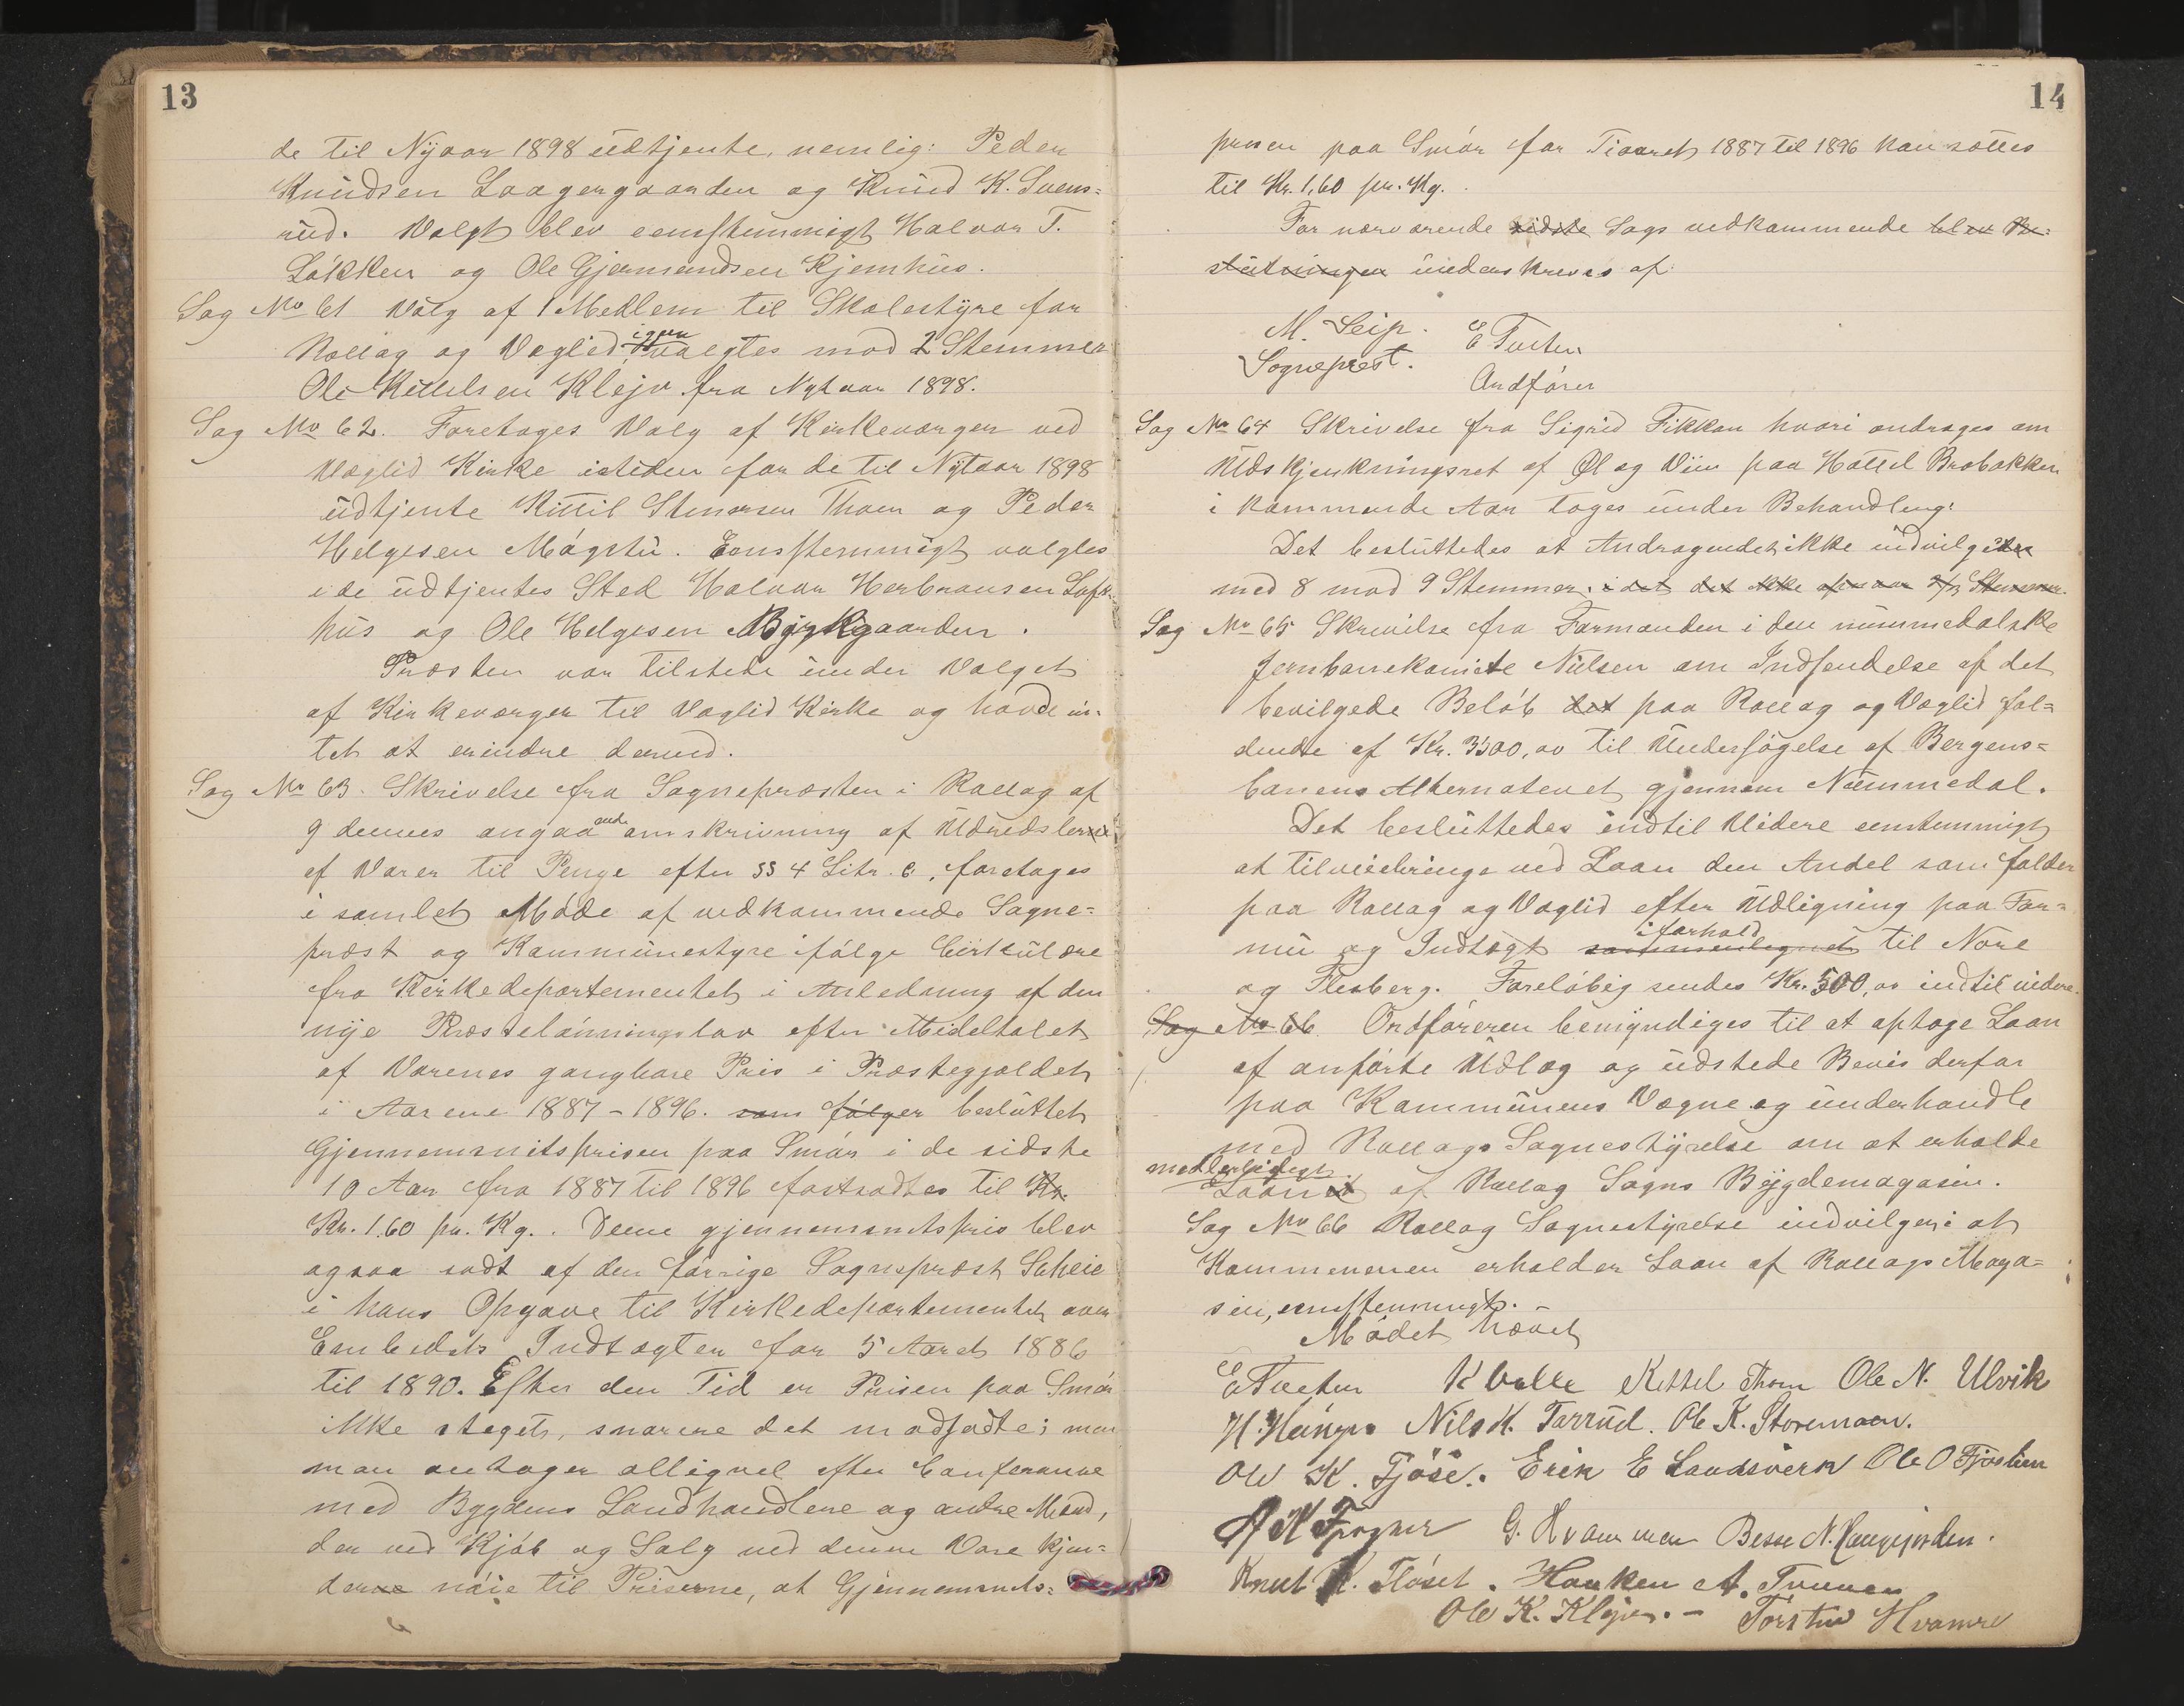 13
de til Nyaar 1898 udtjente, nemlig: Peder
Knudsen Laagergaarden og Knud K. Svens=
rud. Valgt blev eensstemmigt Halvor T.
Løkken og Ole Gjermundsen Kjemhus.
Sag No 61 Valg af 1 Medlem til Skolestyre for
Rollag og Veglid igjen valgtes mod 2 Stemmer
Ole Kittilsen Klejv fra Nytaar 1898.
Sag No 62. Foretoges Valg af Kirkeværger ved
Væglid Kirke isteden for de til Nytaar 1898
udtjente Kittil Stenersen Thoen og Peder
Helgesen Møgstu. Eensstemmigt valgtes
i de udtjentes Sted Halvor Herbransen
hus og Ole Helgesen Byrkgaarden.
Præsten var tilstede under Valget
af Kirkeværger til Væglid Kirke og havde in-
tet at erindre derved.
Sag No 63. Skrivelse fra Sognepræsten i Rollag af
9 dennes angaaende omskrivning af Udredslerne
af Varer til Penge efter §§ 4 Litr. c, foretages
i samlet Møde af vedkommende Sogne=
præst og Kommunestyre ifølge Cirkulære
fra Kirkedepartementet i Anledning af den
nye Præstelønningslov efter Middeltalet
af Varenes gangbare Pris i Præstegjældet
i Aarene 1887-1896. som følger besluttet
Gjennemsnitsprisen paa Smør i de sidste
10 Aar fra 1887 til 1896 fastsadtes til Kr.
Kr. 1.60 pr. Kg. . Denne gjennemsnitspris blev
ogsaa sadt af den forrige Sognepræst Scheie
i hans Opgave til Kirkedepartementet over
Embedets Indtægter for 5 Aaret 1886
til 1890. Efter den Tid er Prisen paa Smør
ikke steget, snarere det modsadte; men
man antager alligvel efter Conferanse
med Bygdens Landhandlere og andre Mænd,
der ved Kjøb og Salg ved denne Vare kjen=
derne nøie til Priserne, at Gjennemsnits=
14
prisen paa Smør for Tiaaret 1887 til 1896 kan sættes
til Kr. 1,60 pr. Kg.
For nærværende sidste Sags vedkommende blev Be=
slutningen underskreves af:
M. Seip. E Tveten
Sogneprest. Ordfører
Sag No 64 Skrivelse fra Sigrid Fikkan hvori andrages om
Udskjenkningsret af Øl og Viin paa Hottel Brobakken
i kommende Aar toges under Behandling:
Det besluttedes at Andragendet ikke indvilgedes
med 8 mod 9 Stemmer. i det det ikke
Sag No 65 Skrivelse fra Formanden i den nummedalske
Jernbanekomite Nielsen om Indsendelse af det
bevilgede Beløb det paa Rollag og Væglid fal=
dende af Kr. 3500,00 til Undersøgelse af Bergens=
banens Alternativet gjennem Nummedal.
Det besluttedes indtil Videre eenstemmigt
at tilveiebringe ved Laan den Andel som falder
paa Rollag og Væglid efter Udligning paa For=
mue og Indtægt sammenlignet i forhold til Nore
og Flesberg. Foreløbig sendes Kr. 500,00 indtil videre.
Sag No 66 Ordføreren bemyndiges til at optage Laan
af anførte Udlæg og udstede Bevis derfor
paa Kommunens Vegne og underhandle
med Rollags Sognestyrelse om at erholde
midlertidigt
Laanet af Rollag Sogns Bygdemagasin.
Sag No 66 Rollag Sognestyrelse indvilger i at
Kommunen erholder Laan af Rollags Maga=
sin, eensstemmigt. -
Mødet hævet
E Tveten K Kittel Thoen Ole N. Ulvik
Nils K. Tarrud. Ole K. Storemoen.
Ole K. Fjøse. Erik E Landsverk Ole O Fjøslien
G. Hvammen Besse N.
Knut K. Fløset. Haaken A. Tvunen
Ole K. Klejv. - Torsten Hvamre